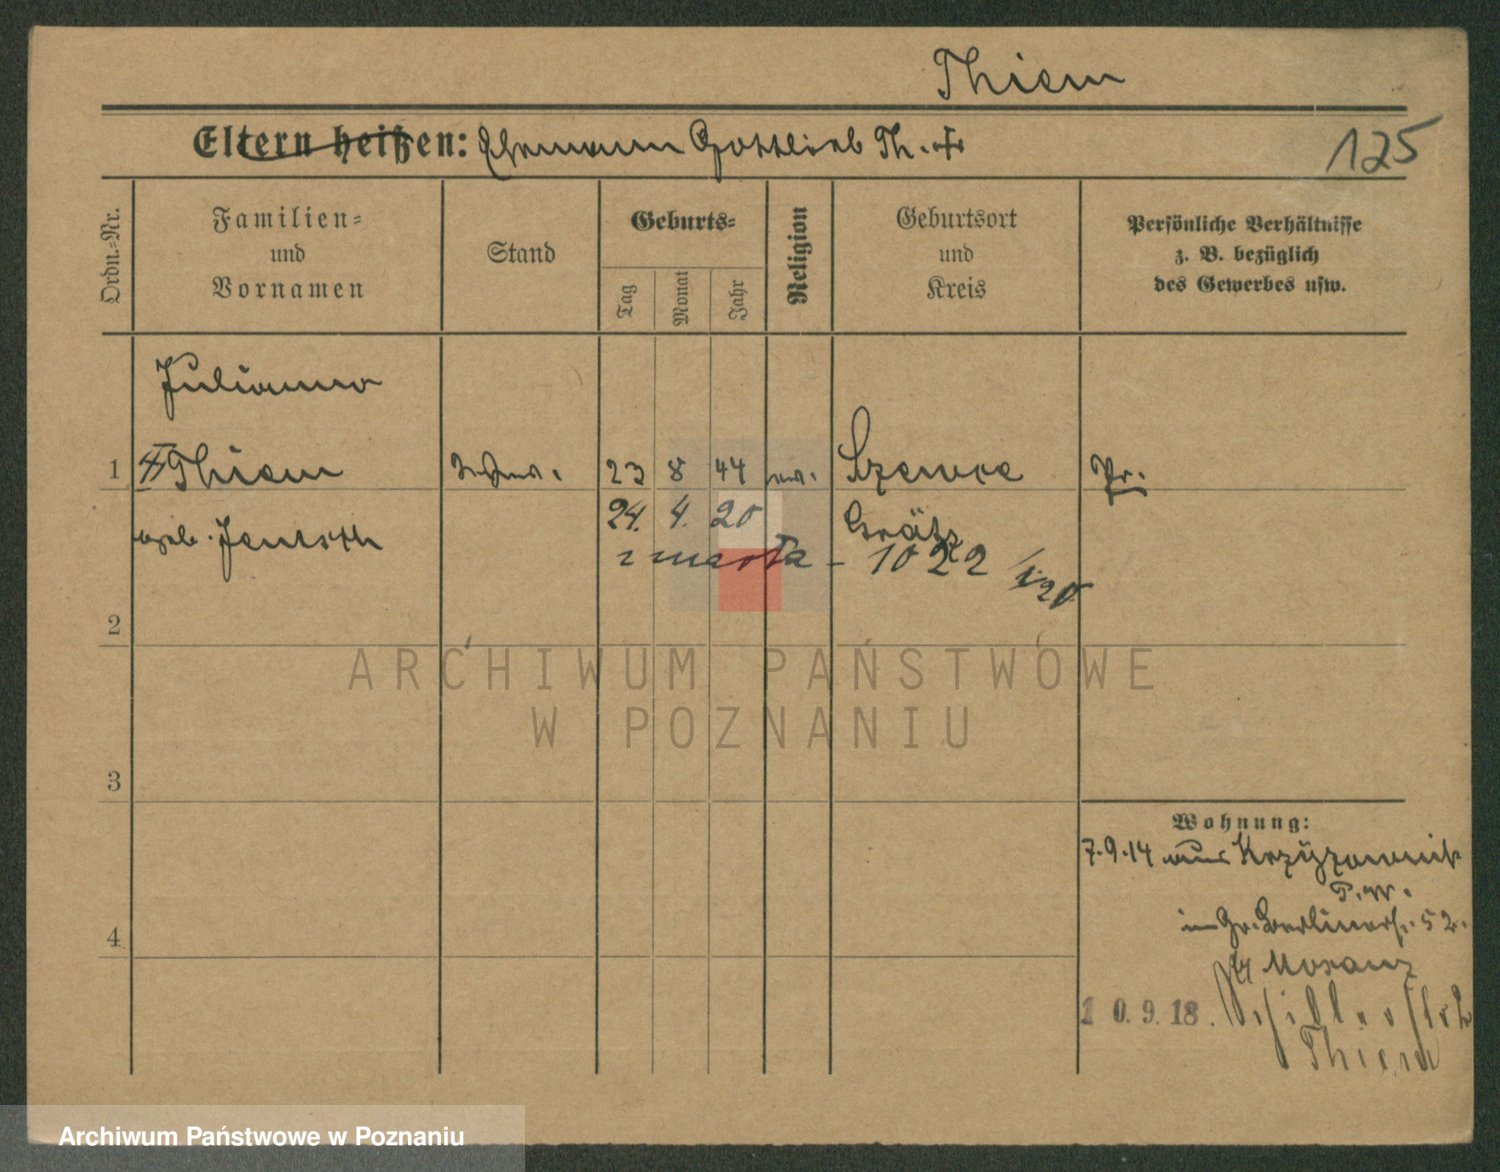 Thiem
Eltern heißen: Ehemann Gottlieb Th. †
125
Ordn.=Nr.
Familien=
und
Vornamen
Stand
Geburts=
Tag
Monat
Jahr
Religion
Geburtsort
und
Kreis
Persönliche Verhältnisse
z. B. bezüglich
des Gewerbes usw.
Julianna
1 Thiem 23 8 44 ev. Szewce Pr.
geb. Jentsch 24. 4. 20 Grätz
zmarła - 1022
/20
2
3
4
Wohnung:
7.9.14 aus Krzyzownik
P.W.
in Gr. Berlinerst. 52.
b/ Moranz
10.9.18. Schillerstr 2
Thiem
ARCHIWUM PAŃSTWOWE
W POZNANIU
Archiwum Państwowe w Poznaniu